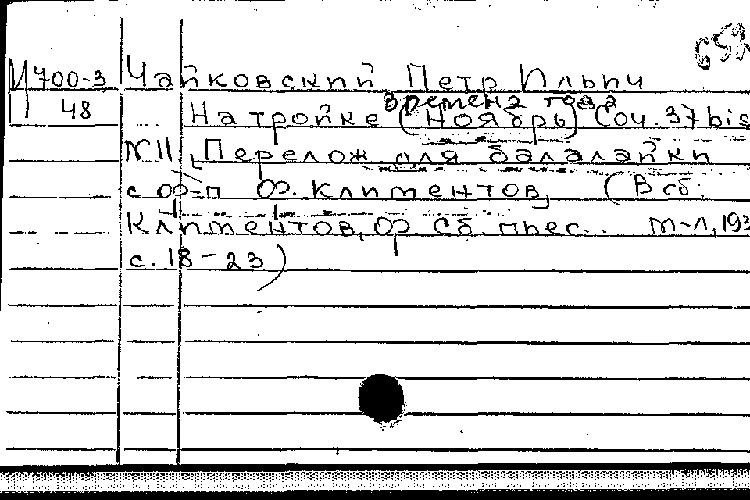 Ц 700-3 Чайковский Петр Ильич
48 времена года
На тройке (Ноябрь) Соч. 37 bis
№ 11. Перелож. для балалайки
с ф-п Ф. Климентов, (В сб.
Климентов, Ф. Сб. пьес.. М-Л, 193
с. 18-23)